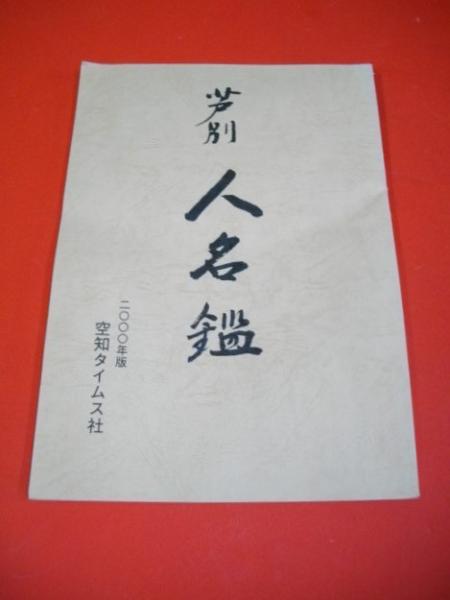 芦別
人名鑑
二〇〇〇年版
空知タイムス社